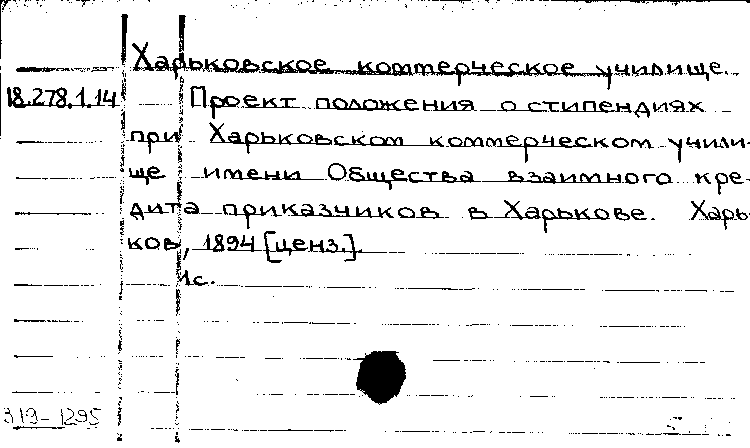 Харьковское коммерческое училище.
18.278.1.14 Проект положения о стипендиях
при Харьковском коммерческом учили-
ще имени Общества взаимного кре-
дита приказчиков в Харькове. Харь-
ков, 1894 [ценз.].
1с.
319-1295